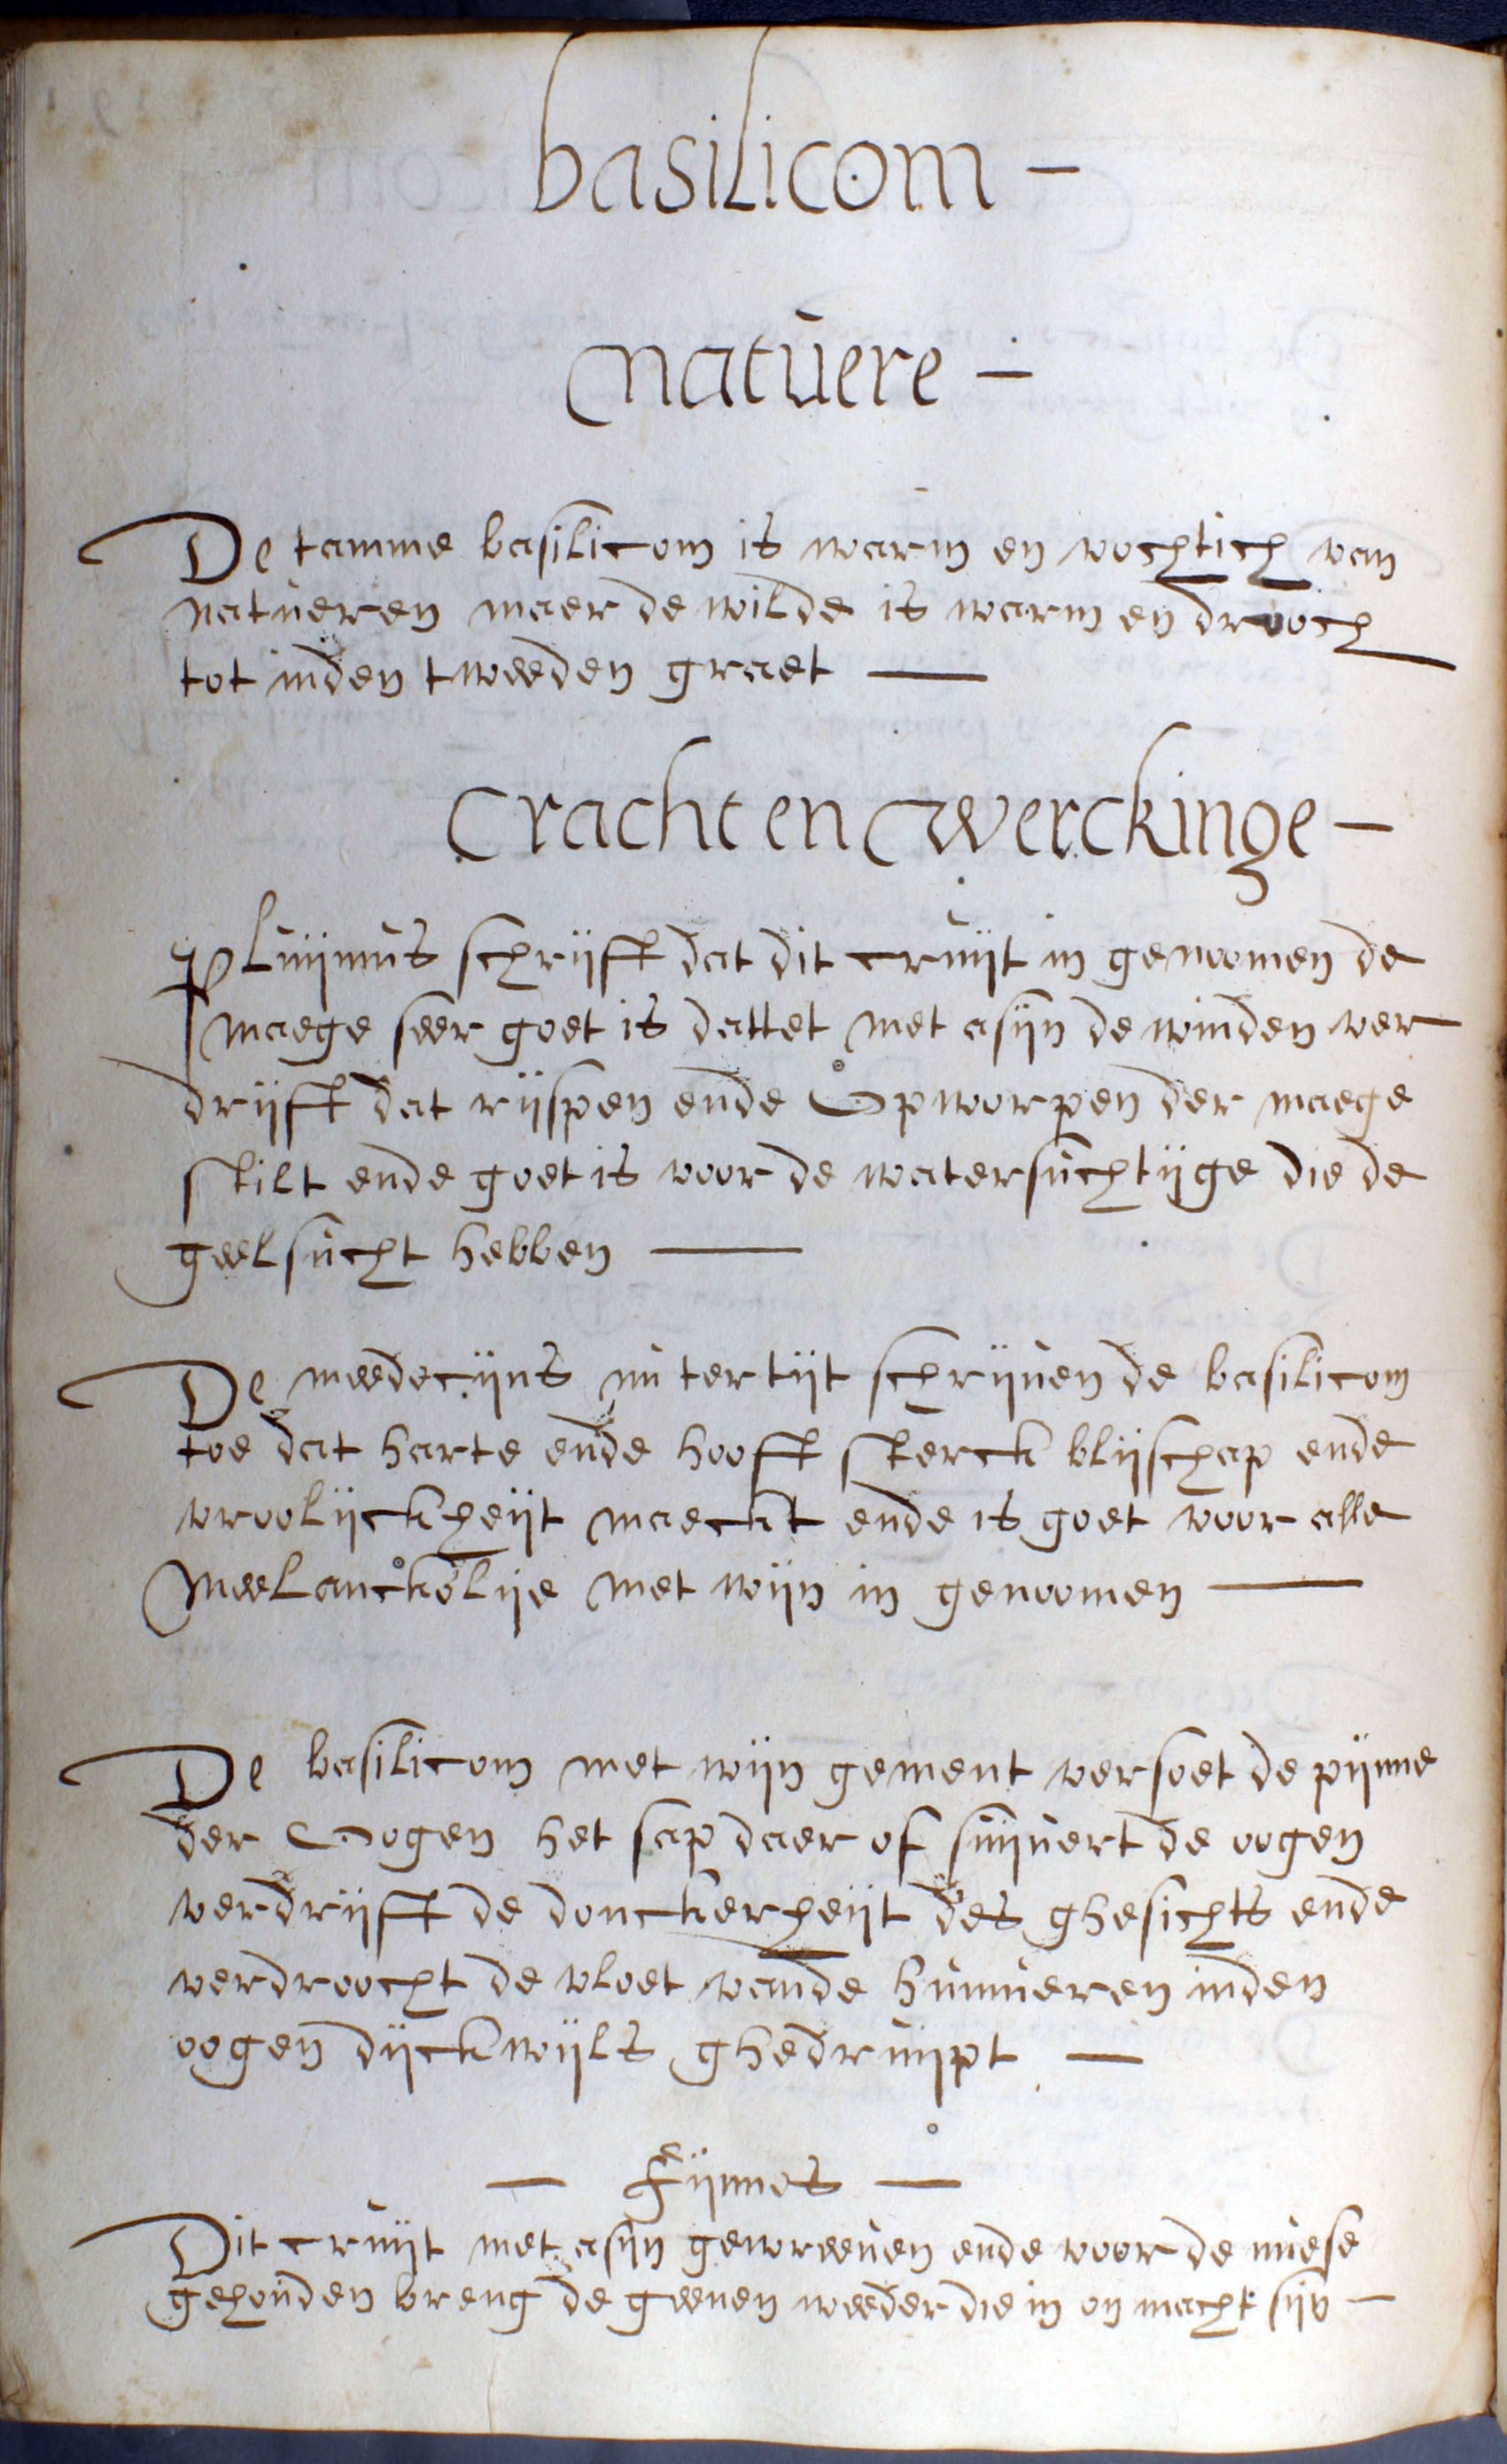 basilicom —
natuere —
De tamme basilicom is warm en vochtich van
natueren maer de wilde is warm en drooch
tot inden tweeden graet —
Cracht en werckinge —
Plinijnus schrijft dat dit cruijt in genoomen de
maege seer goet is dattet met asijn de winden ver
drijft dat rijspen ende opworpen der maege
stilt ende goet is voor de watersuchtijge die de
geelsucht hebben —
De meedecijns nu ter tijt schrijven de basilicom
toe dat harte ende hooft sterck blijschap ende
vroolijckheijt maeckt ende is goet voor alle
Meelanckolije met wijn in genoomen —
De basilicom met wijn gement versoet de pijnne
der Oogen het sap daer of suijvert de oogen
verdrijft de donckerheijt des ghesichts ende
verdroocht de vloet vande humueren inden
oogen dijckwijls ghedruijpt —
— Fijnnes —
Dit cruijt met asijn gewreeven ende voor de nuese
gehouden breng de geenen weeder die in onmacht sijn —